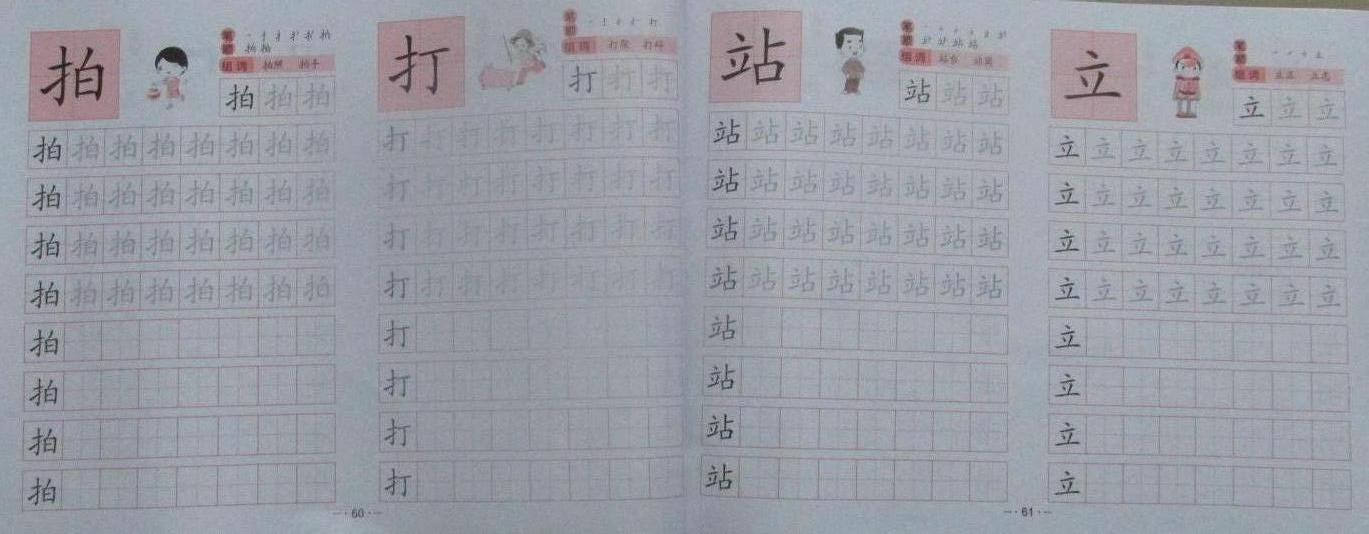 拍
笔顺
拍 拍
组词 拍照 拍手
拍 拍 拍
拍 拍 拍 拍 拍 拍 拍 拍
拍 拍 拍 拍 拍 拍 拍 拍
拍 拍 拍 拍 拍 拍 拍 拍
拍 拍 拍 拍 拍 拍 拍 拍
拍
拍
拍
拍
打
笔顺 打
组词
打 打 打
打 打 打 打 打 打 打 打
打 打 打 打 打 打 打 打
打 打 打 打 打 打 打 打
打 打 打 打 打 打 打 打
打
打
打
打
60
站
笔顺
站
组词 站台 站岗
站 站 站
站 站 站 站 站 站 站 站
站 站 站 站 站 站 站 站
站 站 站 站 站 站 站 站
站 站 站 站 站 站 站 站
站
站
站
站
立
笔顺 立
组词 立正 立志
立 立 立
立 立 立 立 立 立 立 立
立 立 立 立 立 立 立 立
立 立 立 立 立 立 立 立
立 立 立 立 立 立 立 立
立
立
立
立
61